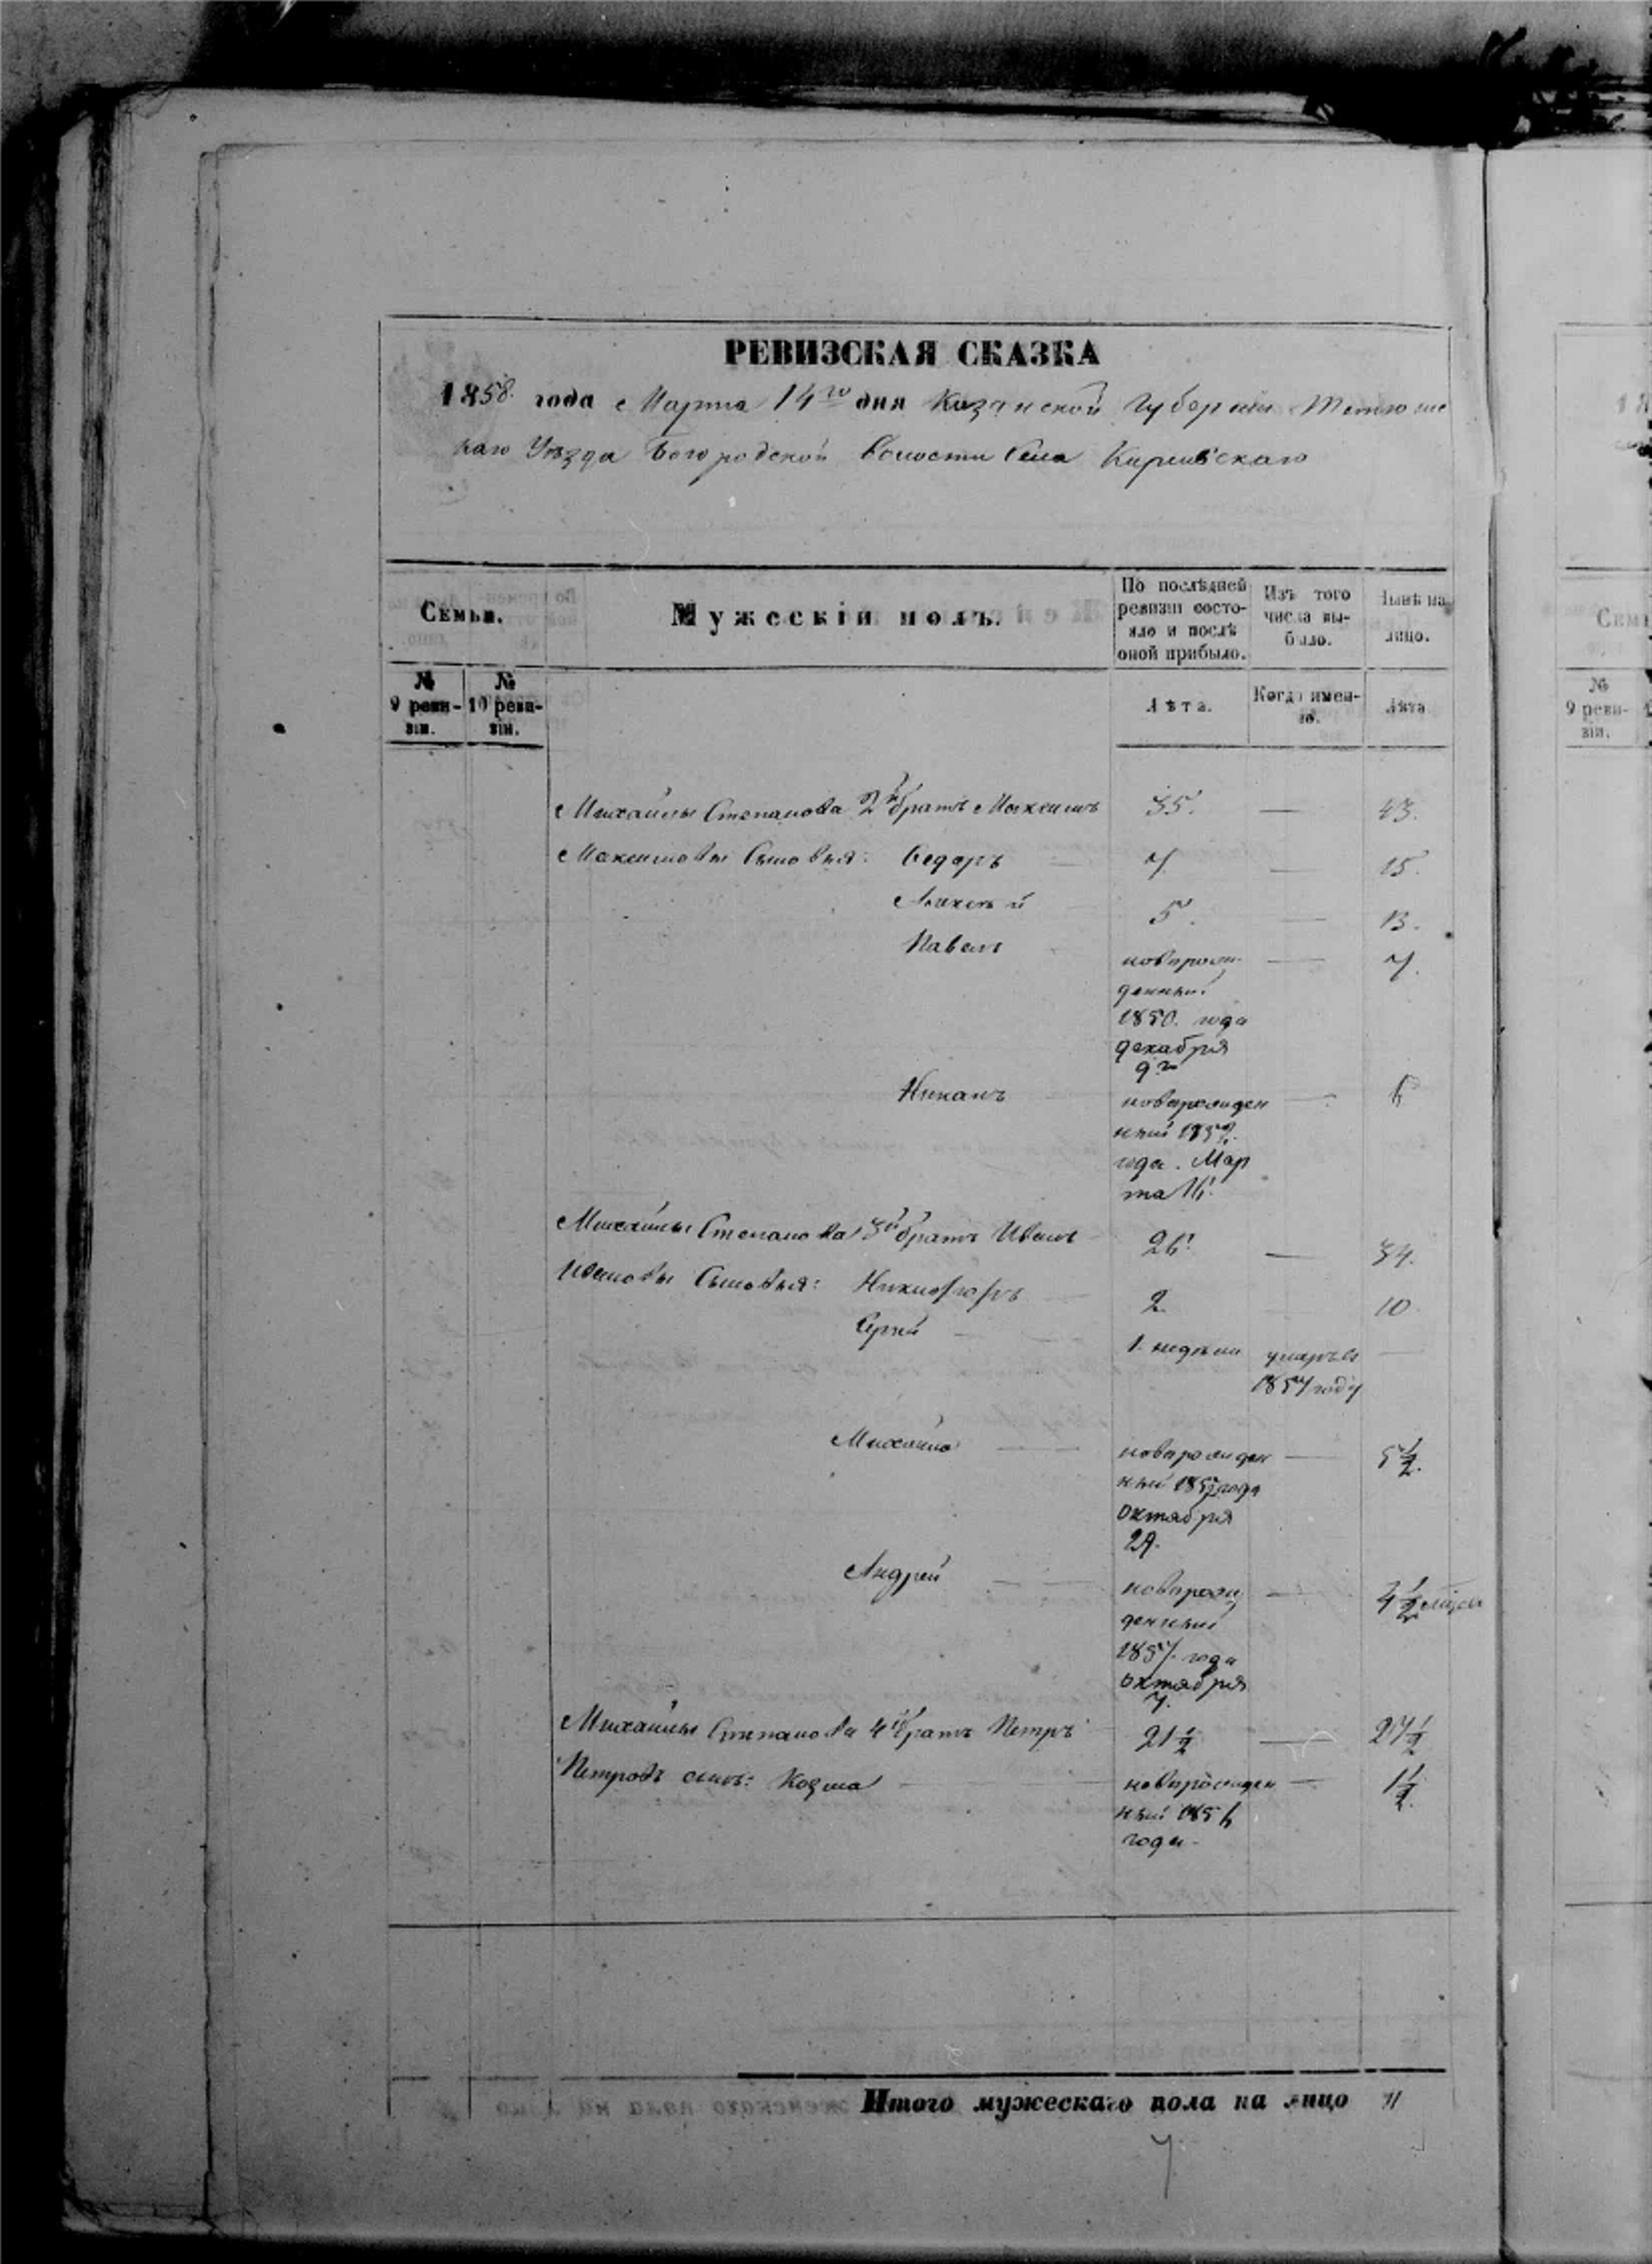 РЕВИЗСКАЯ СКАЗКА
1858 года Марта 14го дня Казанской Губернии Тетюшс
каго Уѣзда Богородской Волости Села
Семьи.
Мужескій полъ.
По послѣдней ревизіи состояло и послѣ оной прибыло.
Изъ того числа выбыло.
Нынѣ на лицо.
№ 9 ревизіи.
№ 10 ревизіи.
Лѣта.
Когда именно.
Лѣта
Михайлы Степанова 2й братъ Максимъ 35. — 43.
Максимовы Сыновья: Ѳедоръ — 7. — 15.
Алексѣй — 5. — 13.
Павелъ новорож — 7.
денный
1850. года
декабря
9го
новорожден — 6
ный
года. Мар
та 16.
Михайлы Степанова 3й братъ Иванъ 26. — 34.
Ивановы Сыновья: Никифоръ — 2. 10
Сергѣй — 1. недѣли умеръ въ —
1854 году
Михайло — новорожден — 5 1/2.
ный года
октября
Андрей — новорож — 4 1/2 мѣсяц
денный
1857. года
октября
7.
Михайлы Степанова 4й братъ Петръ 21 1/2 — 27 1/2
Петровъ сынъ: Козма — новорожден — 1 1/2.
ный 1856
года
Итого мужескаго пола на лицо
7
№ 9 ревизіи.